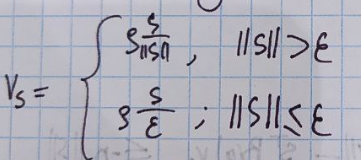 V_s = { ρ s/||s|| , ||s|| > ε
ρ s/ε ; ||s|| ≤ ε